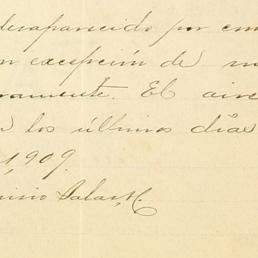 desaparecido por com
n excepción de m
ramente. El aire
los últimos días
1909.
nisio Salas, C.